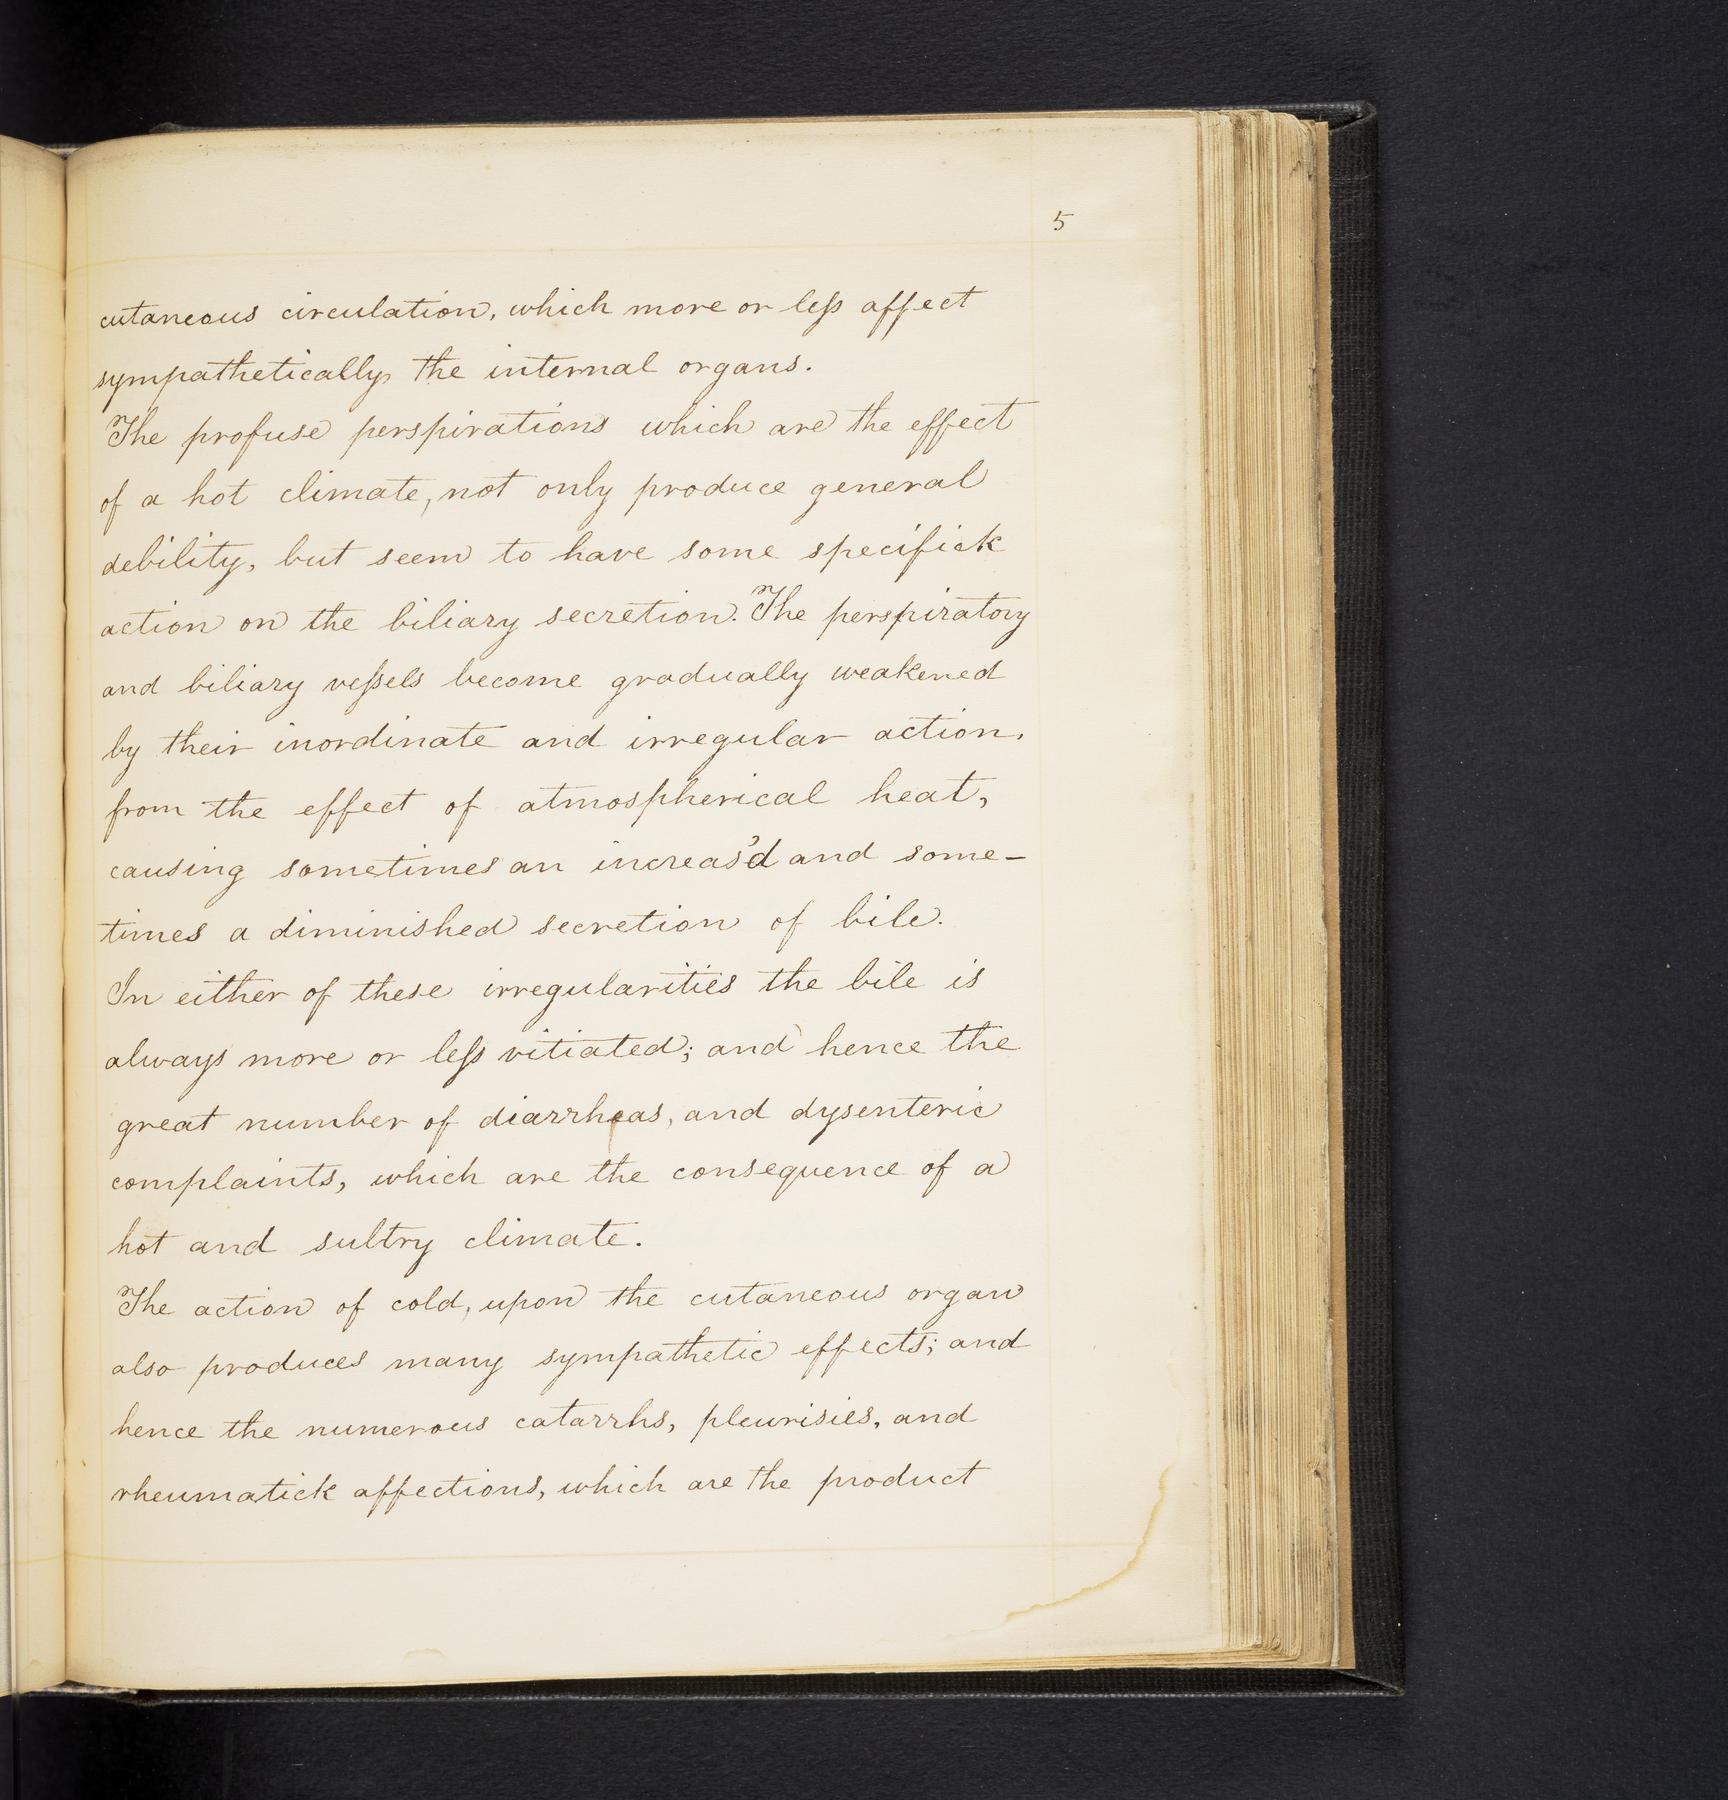 5
cutaneous circulation, which more or leſs affect
sympathetically the internal organs.
The profuse perspirations which are the effect
of a hot climate, not only produce general
debility, but seem to have some specifick
action on the biliary secretion. The perspiratory
and biliary veſsels become gradually weakened
by their inordinate and irregular action,
from the effect of atmospherical heat,
causing sometimes an increas'd and some-
times a diminished secretion of bile.
In either of these irregularities the bile is
always more or leſs vitiated; and hence the
great number of diarrheas, and dysenteric
complaints, which are the consequence of a
hot and sultry climate.
The action of cold, upon the cutaneous organ
also produces many sympathetic effects; and
hence the numerous catarrhs, pleurisies, and
rheumatick affections, which are the product